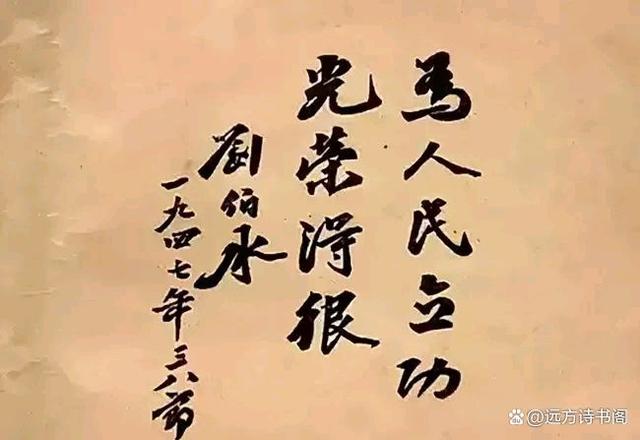 為人民立功
光荣得很
劉伯承
一九四七年三八節
@远方诗书阁